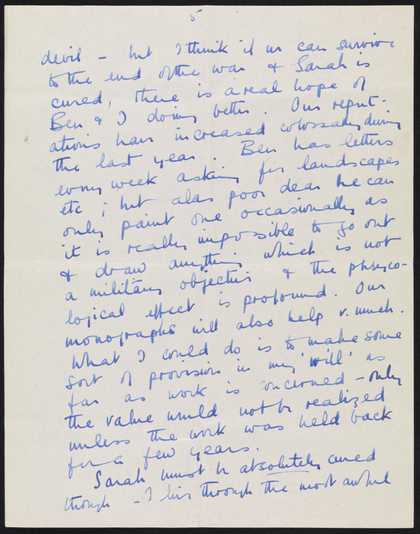 5
devil – but I think if we can survive
to the end of the war & Sarah is
cured, there is a real hope of
Ben & I doing better. Our reput-
ations have increased colossally during
the last year. Ben has letters
every week asking for landscapes
etc; but alas poor dear he can
only paint one occasionally as
it is really impossible to go out
& draw anything which is not
a military objective & the phsyco-
logical effect is profound. Our
monographs will also help v. much.
What I could do is to make some
sort of provision in my 'will' as
far as work is concerned – only
the value would not be realized
unless the work was held back
for a few years.
Sarah must be absolutely cured
though – I live through the most awful